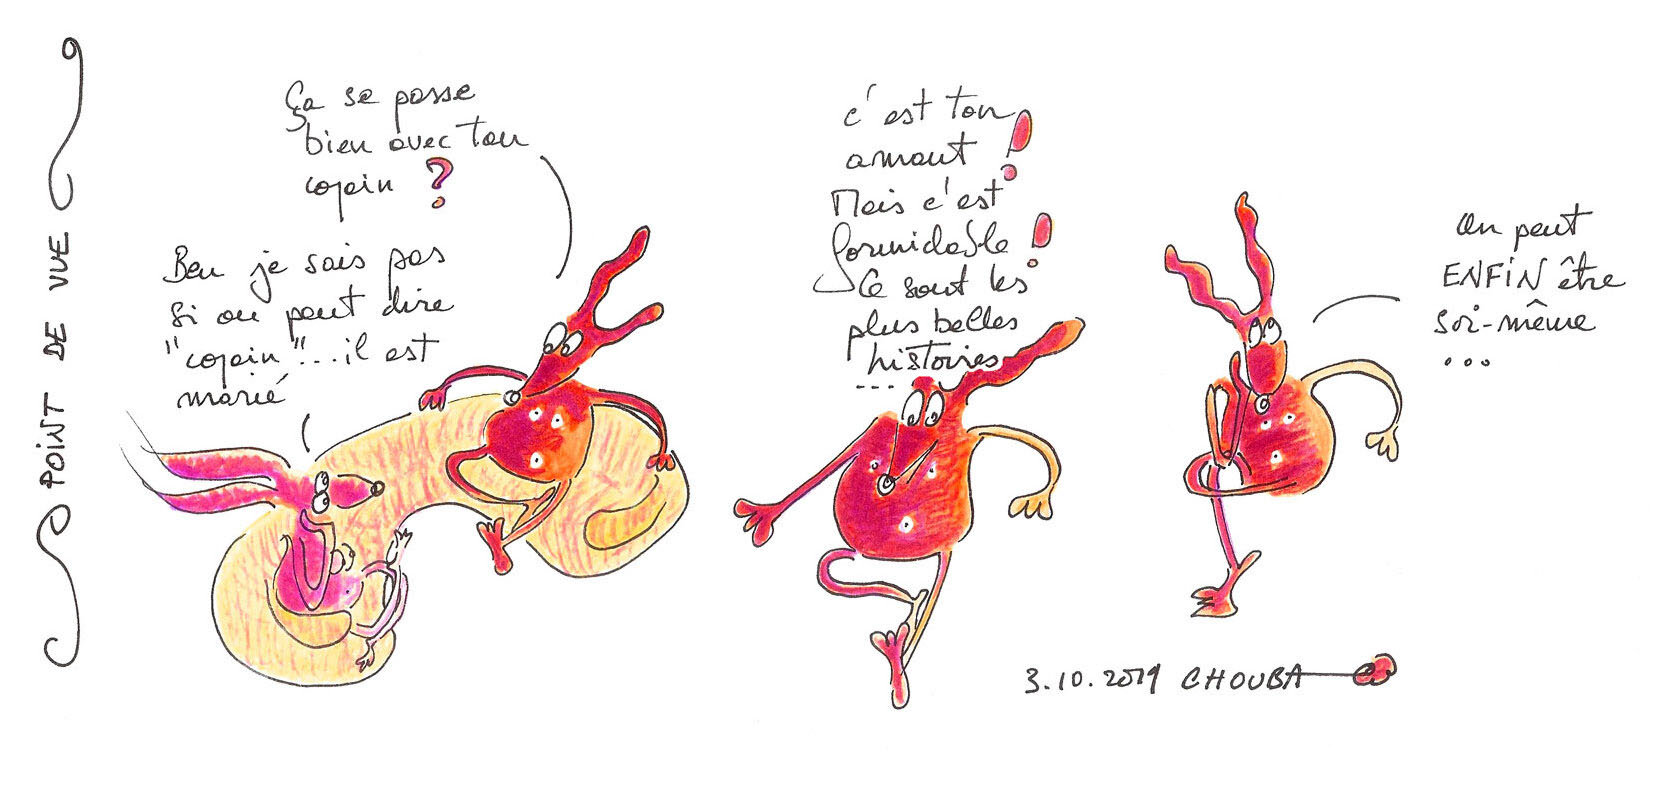 POINT DE VUE
Ça se passe
bien avec ton
copain ?
Ben je sais pas
si on peut dire
"copain"... il est
marié
c'est ton
amant !
Mais c'est
formidable !
Ce sont les
plus belles
histoires
...
On peut
ENFIN être
soi-même
...
3.10.2019 CHOUBA